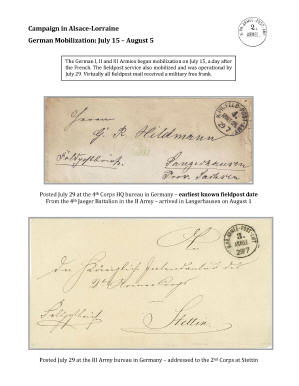 Campaign in Alsace-Lorraine
German Mobilization: July 15 – August 5
2.
ARMEE
The German I, II and III Armies began mobilization on July 15, a day after
the French. The fieldpost service also mobilized and was operational by
July 29. Virtually all fieldpost mail received a military free frank.
Herrn
G. R. Heldmann
Feldpostbrief.
Sangerhausen
Prov. Sachsen
4.
29 7
Posted July 29 at the 4th Corps HQ bureau in Germany – earliest known fieldpost date
From the 4th Jaeger Battalion in the II Army – arrived in Langerhausen on August 1
An
die Königlich Intendantur des
2t Armeecorps
Feldpostbrief
Stettin
3.
ARMEE
29 7
Posted July 29 at the III Army bureau in Germany – addressed to the 2nd Corps at Stettin